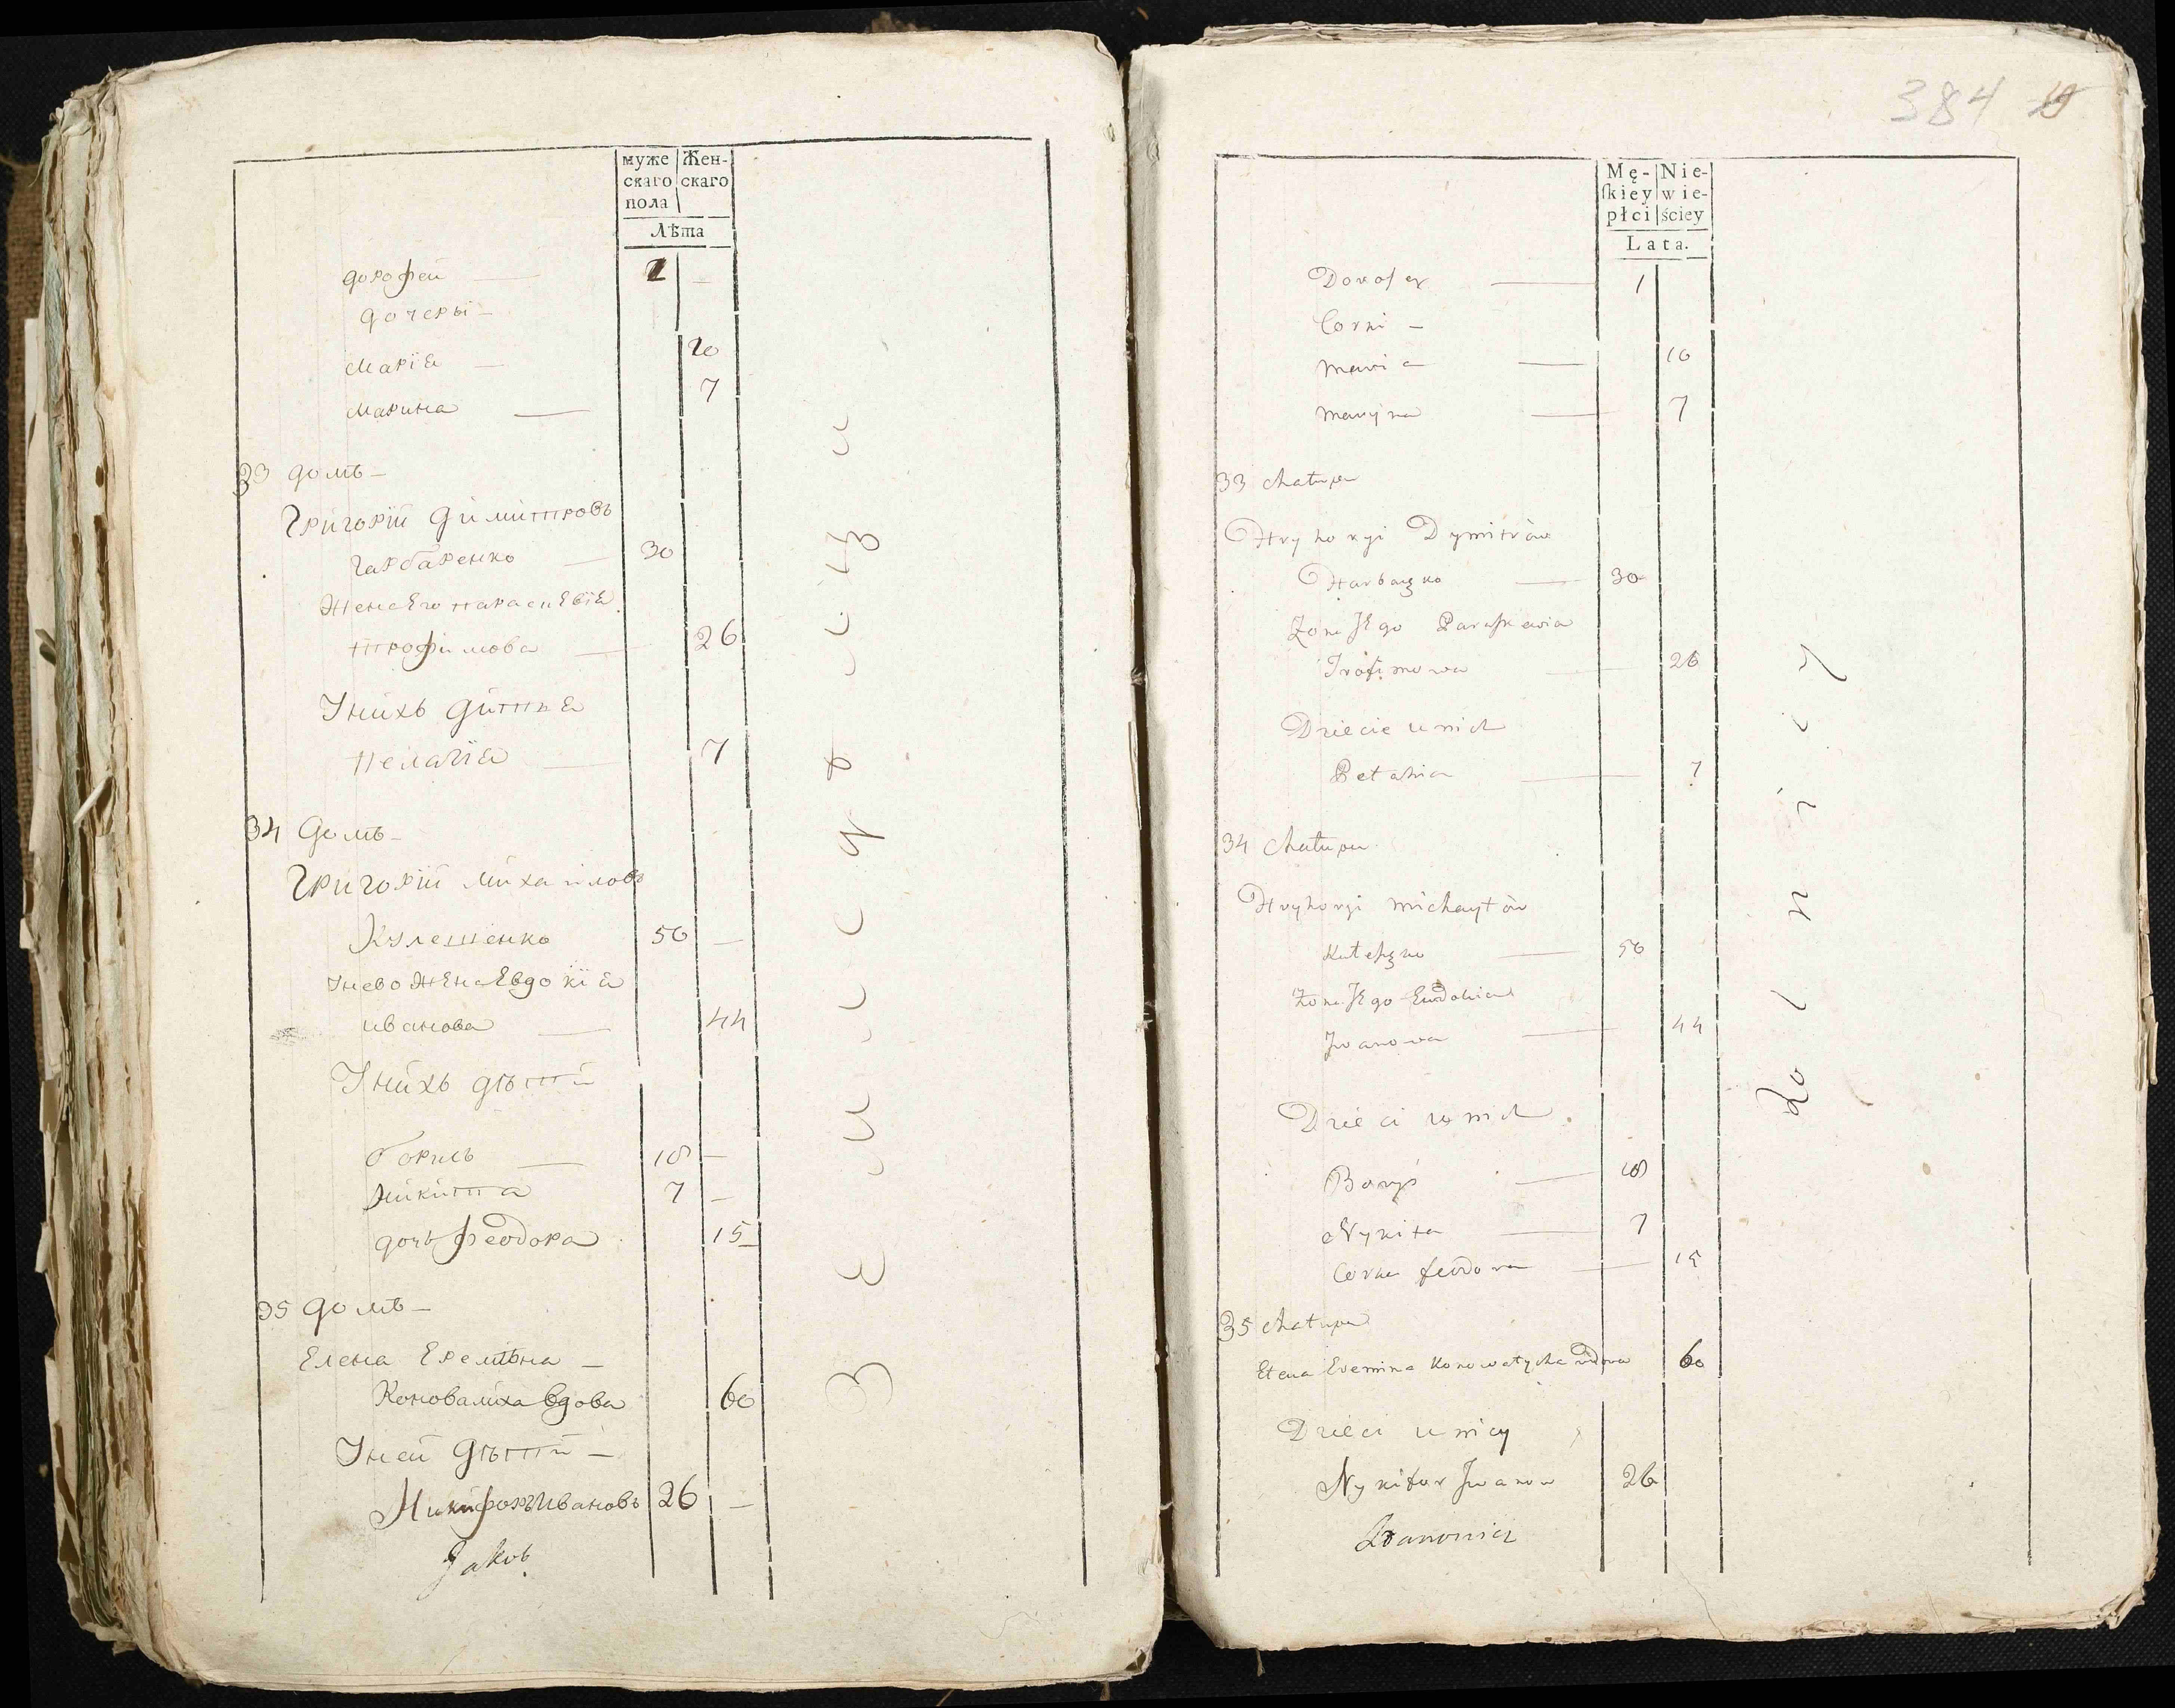 муже Жен-
скаго скаго
пола
Лѣта
дорофей — 1 —
дочеры —
Марія — 10
Марина — 7
33 домъ —
Григорій Димитровъ
Гарбаренко — 30
Жена Его параскевіа
Трофимова — 26
Унихъ дитье
Пелагіа — 7
34 домъ —
Григорій Михаиловъ
Кулешенко 50 —
Унево Жена Евдокіа
иванова — 44
Унихъ дѣти
борисъ — 10 —
Никита 7 —
дочь феодора 15
35 домъ —
Елена Еремѣна —
Коновалиха вдова 60
Уней дѣти —
Никифоръ Ивановъ 26 —
Jakob.
384
Mę- Nie-
skiey wie-
płci ściey
Lata.
Dorofey — 1
Corki —
Maria — 10
Maryna — 7
33 Chałupa
Hryhoryi Dymitrów
Harbaręko — 30
Żona Jego Paraskewia
Trofimowa — 26
Dziecie u nich
Pelahia — 7
34 Chałupa
Hryhoryi Michayłów
Kuleszęko — 50
Żona Jego Ewdokia
Jwanowa — 44
Dzieci u nich
Borys — 10
Nykita — 7
Corka feodora — 15
35 Chałupa
Elena Eremina Konowałycha wdowa 60
Dzieci u niey
Nykifor Jwanow 26
rolnicy